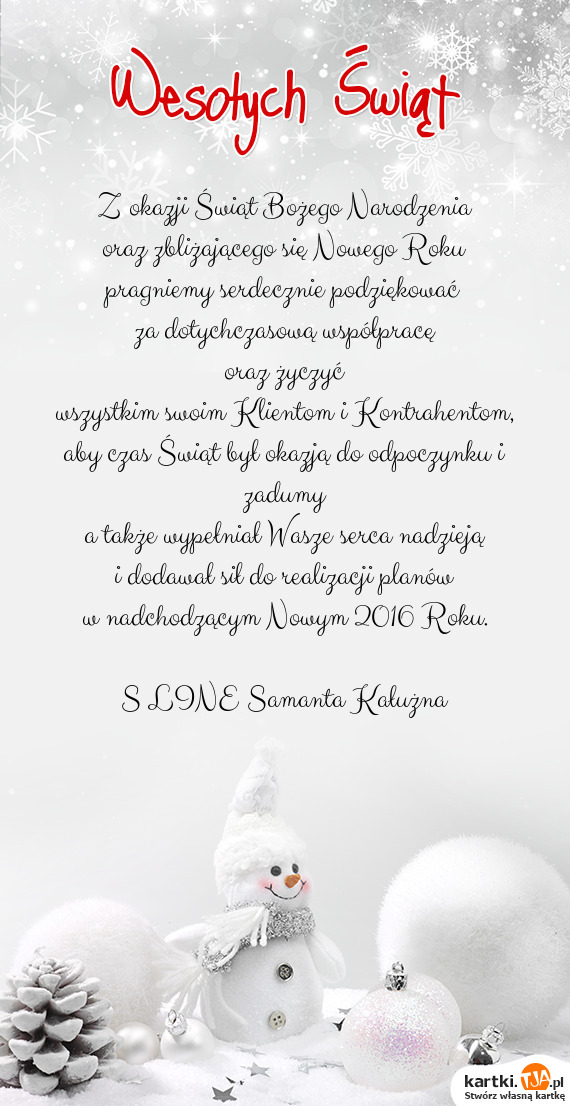 Wesołych Świąt
Z okazji Świąt Bożego Narodzenia
oraz zbliżającego się Nowego Roku
pragniemy serdecznie podziękować
za dotychczasową współpracę
oraz życzyć
wszystkim swoim Klientom i Kontrahentom,
aby czas Świąt był okazją do odpoczynku i
zadumy
a także wypełniał Wasze serca nadzieją
i dodawał sił do realizacji planów
w nadchodzącym Nowym 2016 Roku.
S LINE Samanta Kałużna
kartki.TJA.pl
Stwórz własną kartkę